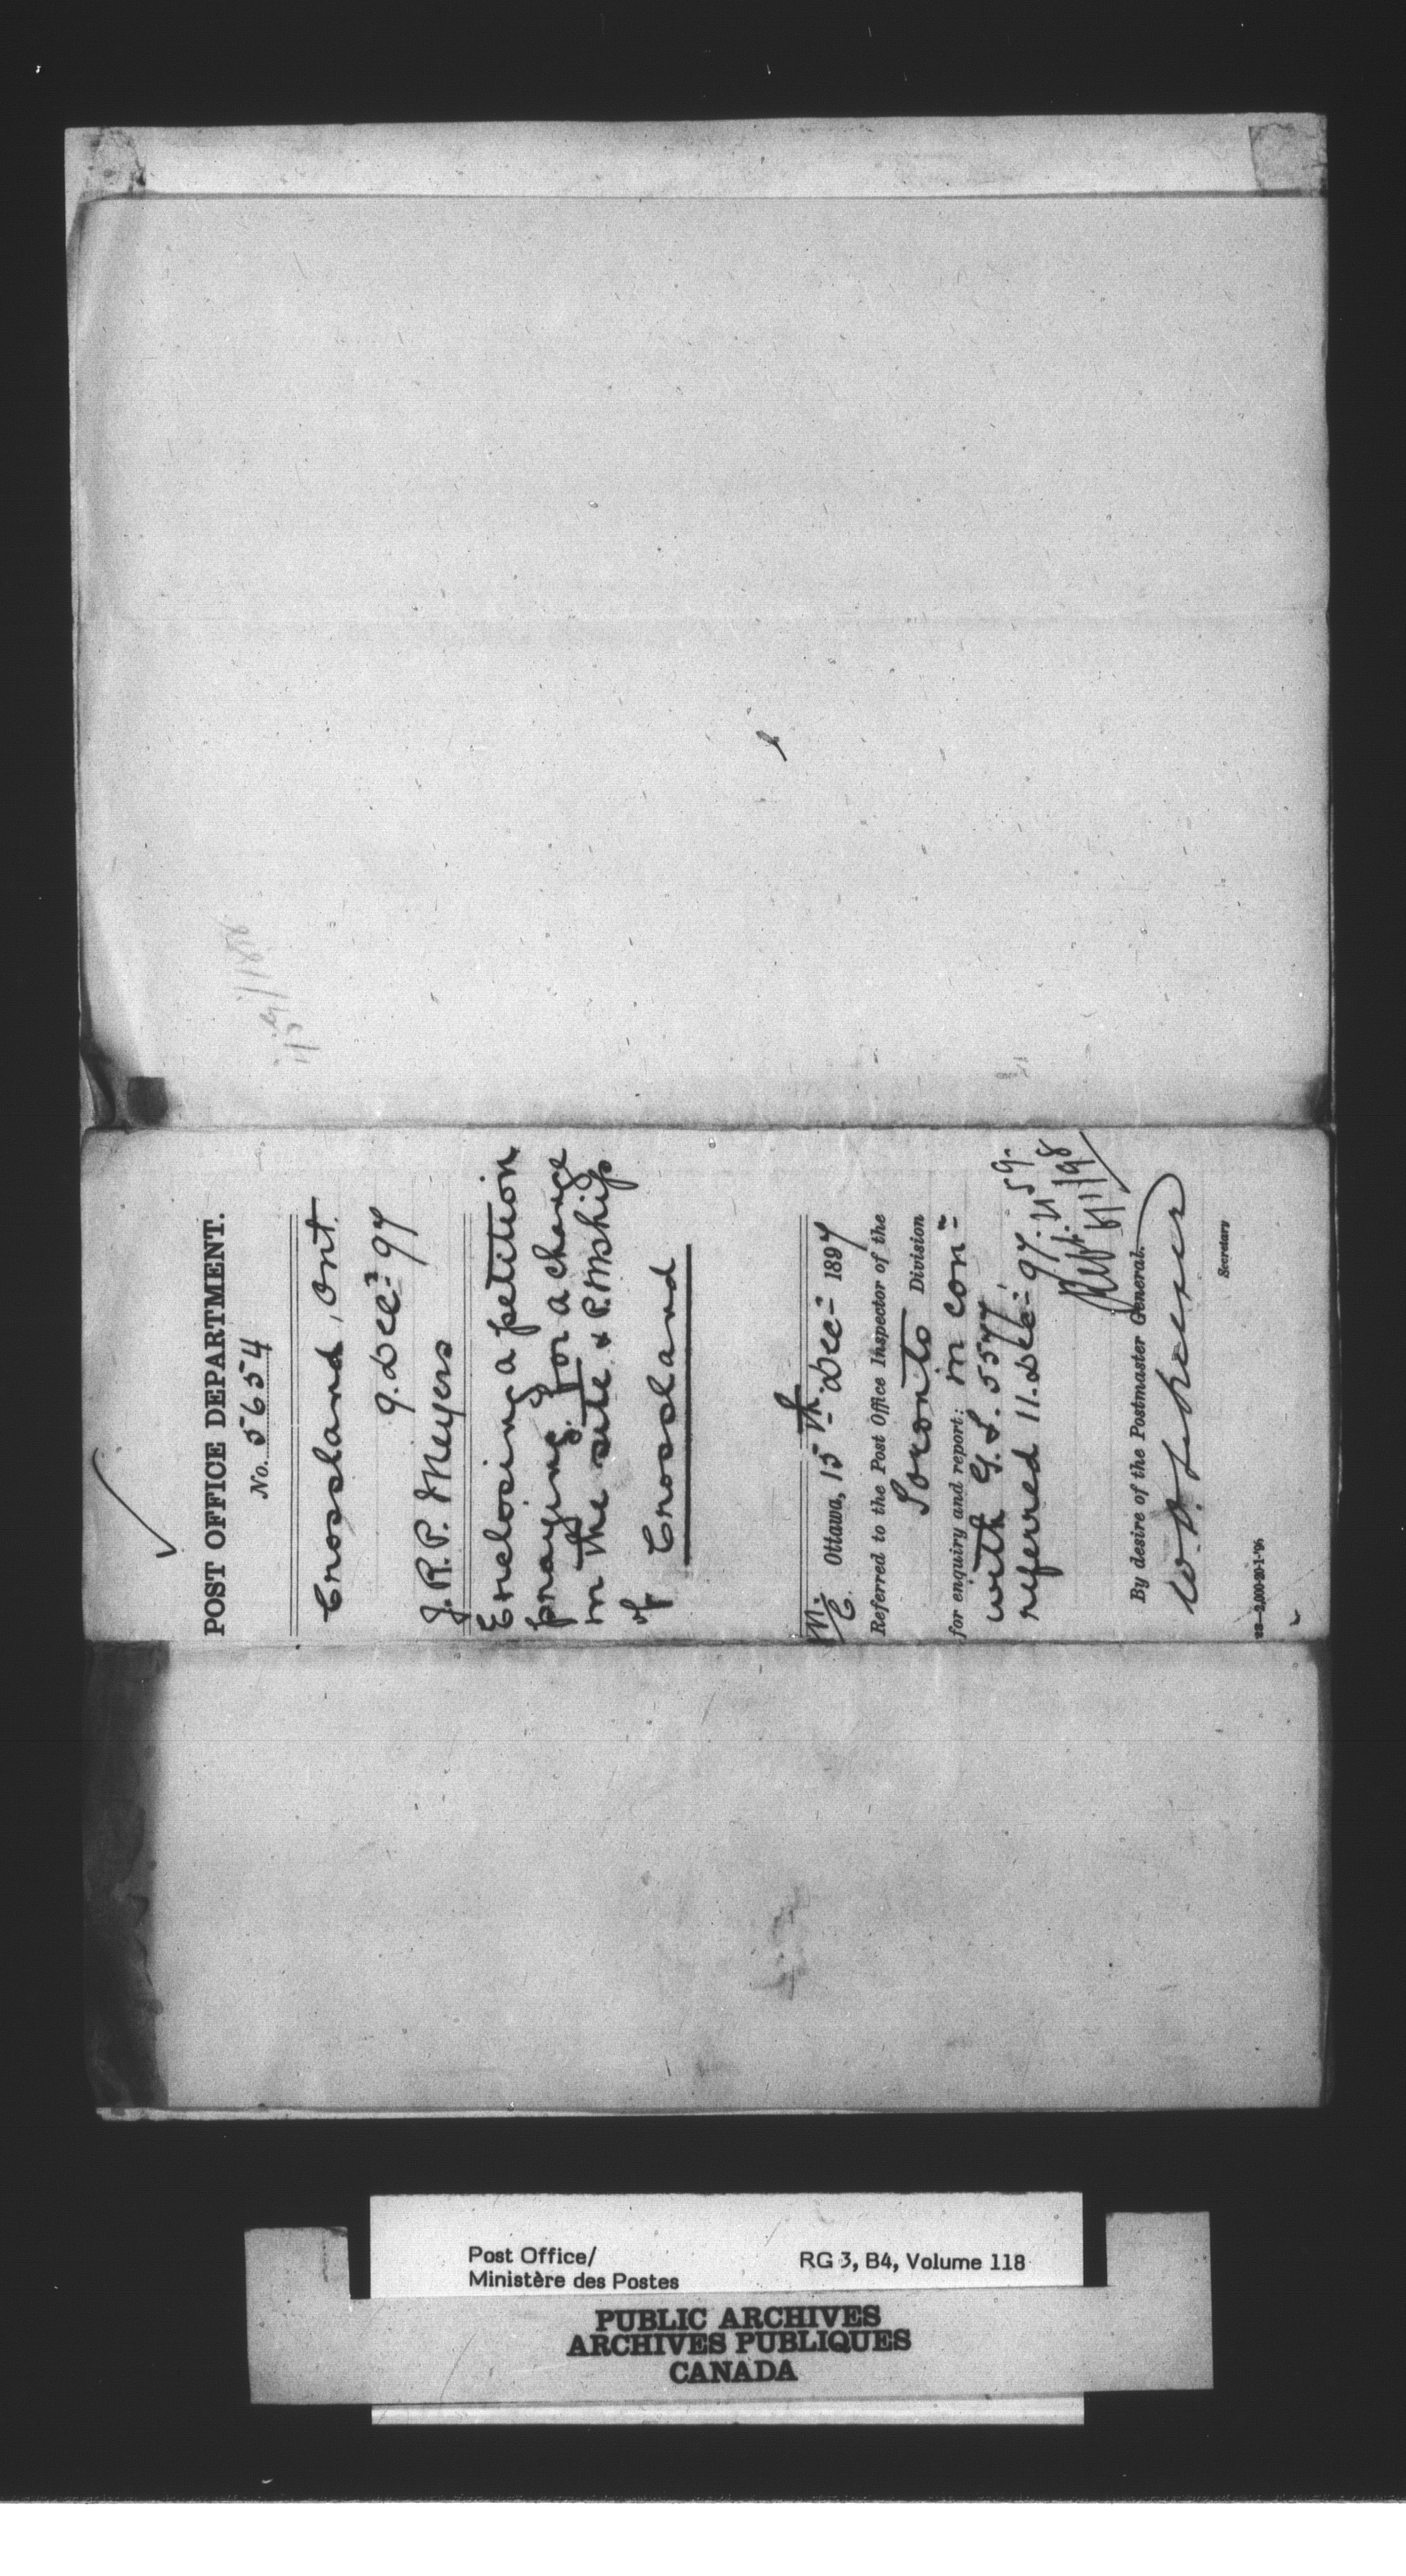 POST OFFICE DEPARTMENT.
No. 5654
Crossland, Ont.
9. Dec= 97
J. R. P. Meyers
Enclosing a petition
praying for a change
in the site & P.Mship
of
Crossland
Ottawa, 15th Dec= 1897
Referred to the Post Office Inspector of the
Toronto Division
for enquiry and report: in con=
with G.S. 5577,
referred 11. Dec= 97.
By desire of the Postmaster General.
Secretary
Post Office/
Ministère des Postes
RG 3, B4, Volume 118
PUBLIC ARCHIVES
ARCHIVES PUBLIQUES
CANADA